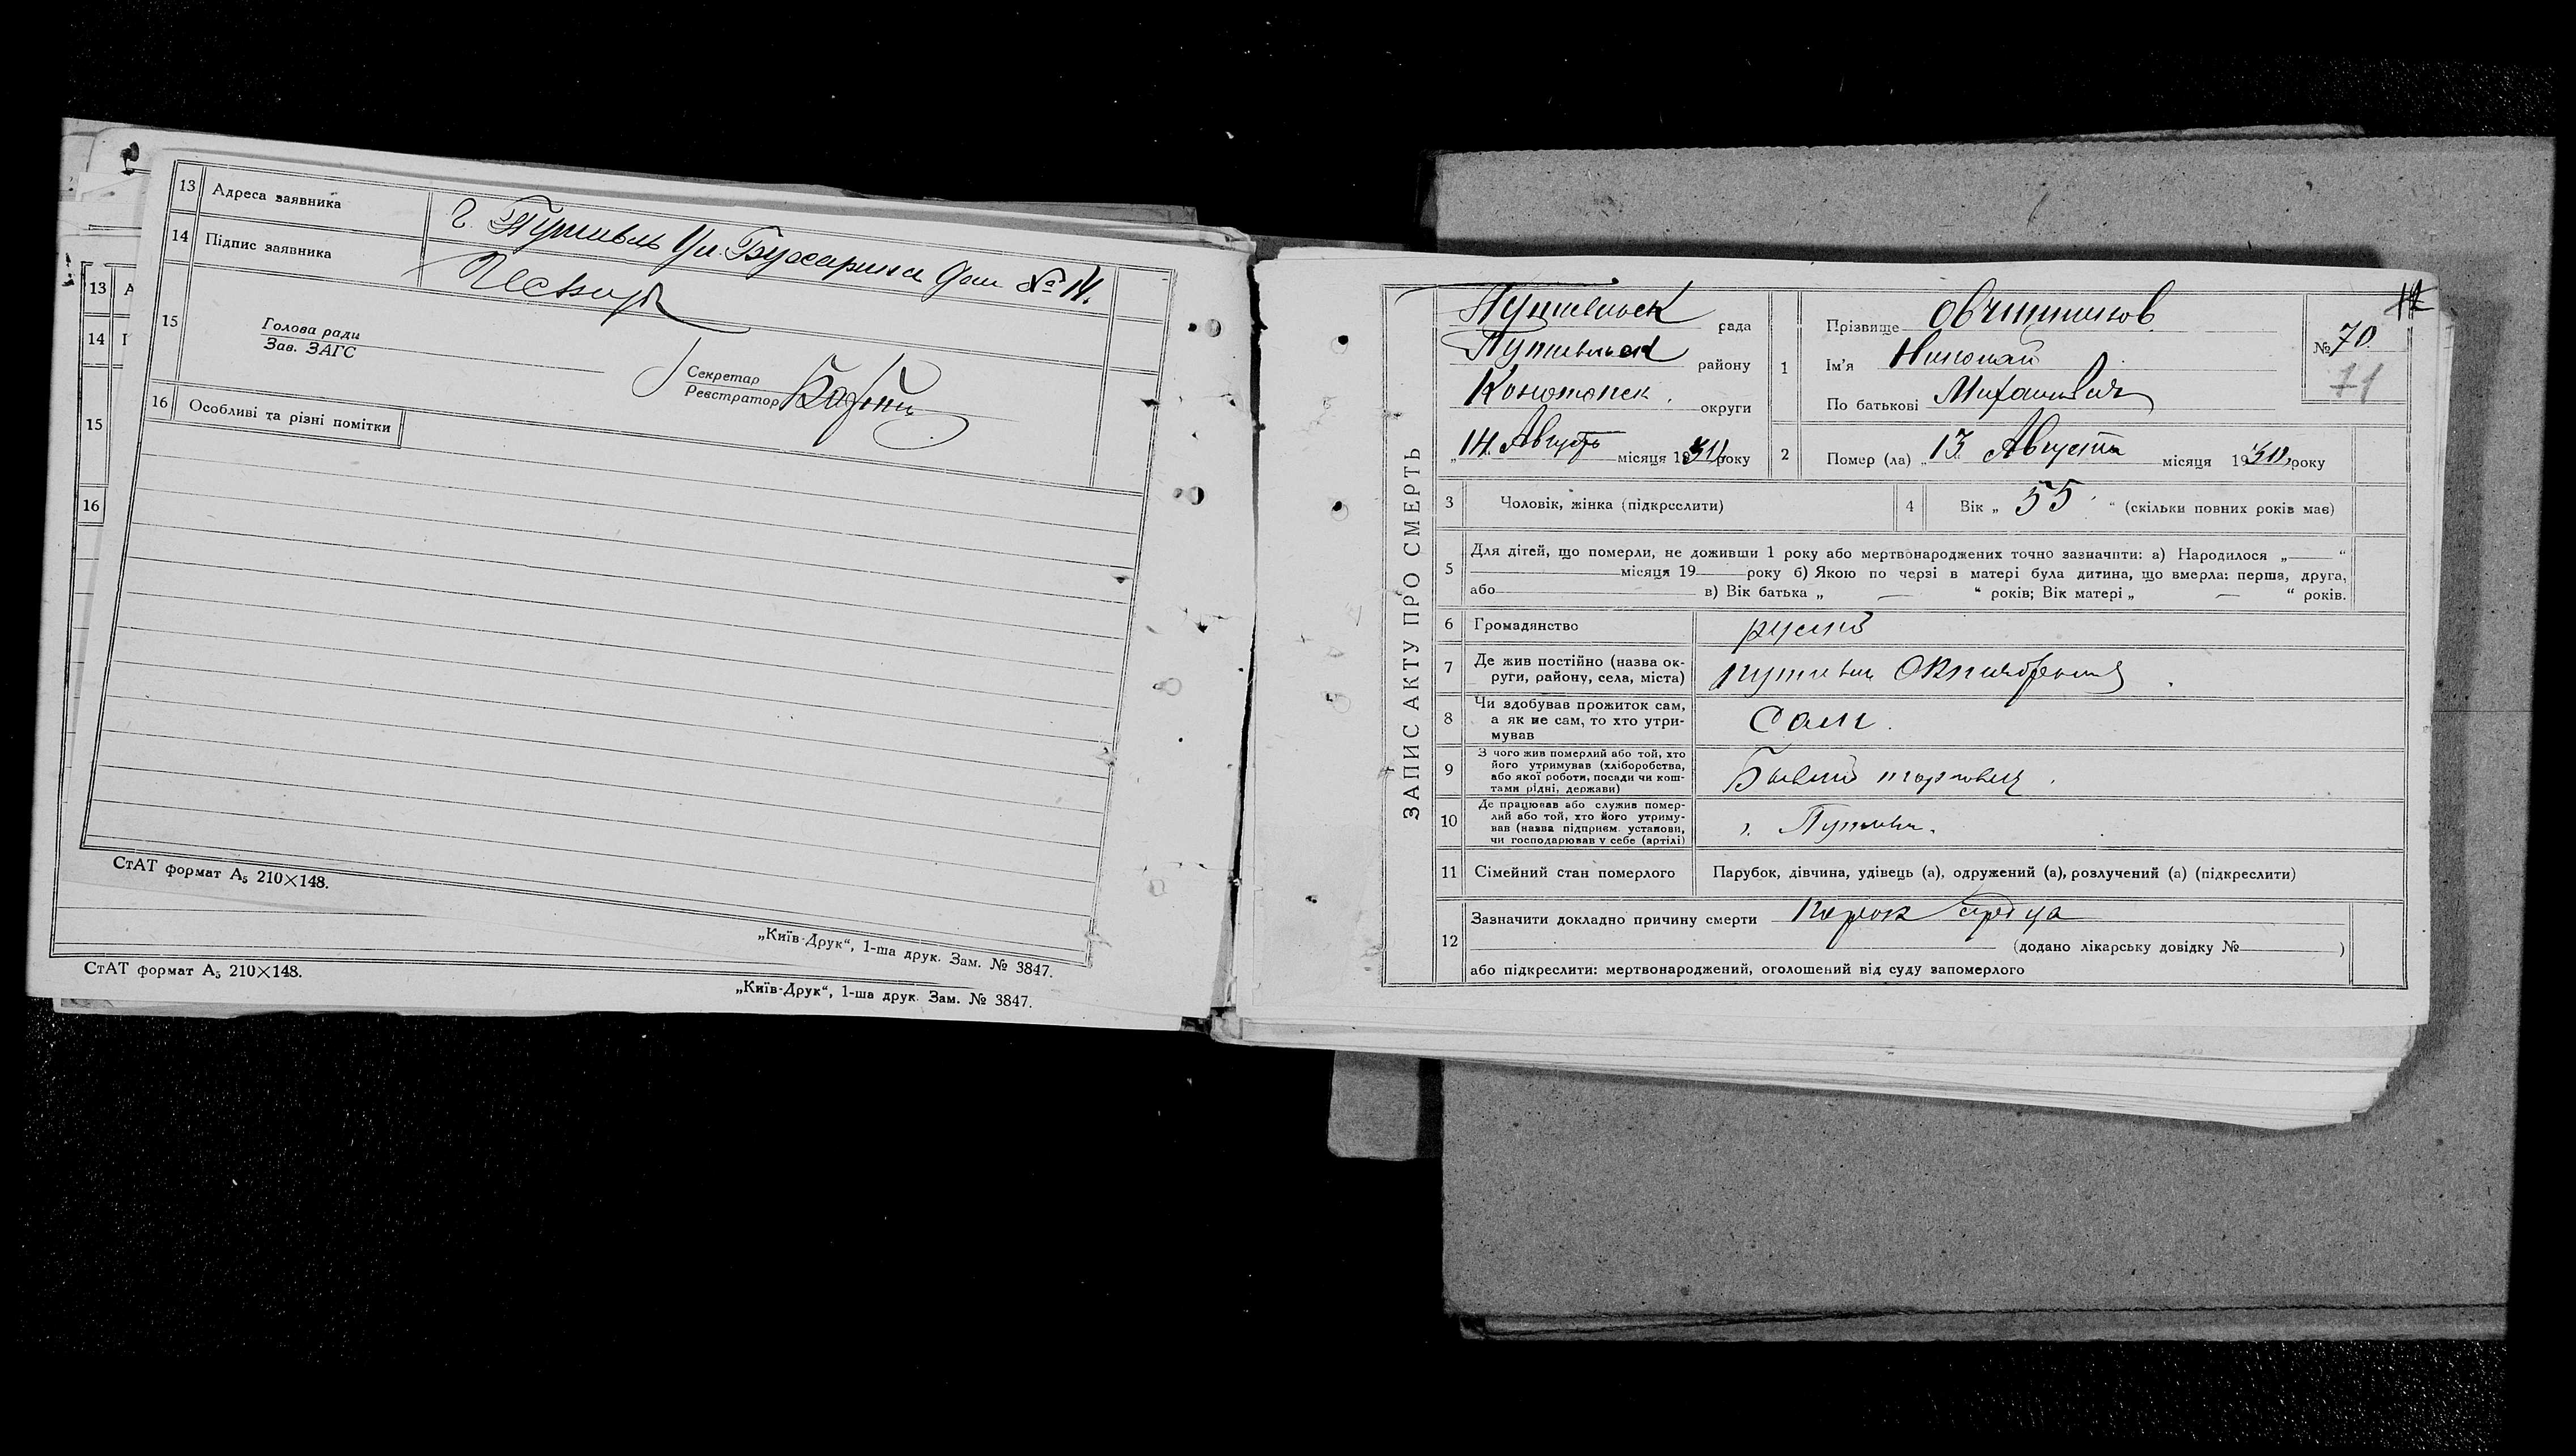 13 Адреса заявника г. Путивль Ул. Бухарина дом № 14.
14 Підпис заявника
15 Голова ради
Зав. ЗАГС
Секретар
Реєстратор
16 Особливі та різні помітки
СтАТ формат А₅ 210×148.
„Київ-Друк“, 1-ша друк. Зам. № 3847.
13 А
14 П
15
16
СтАТ формат А₅ 210×148.
„Київ-Друк“, 1-ша друк. Зам. № 3847.
ЗАПИС АКТУ ПРО СМЕРТЬ
Путивльск рада
Путивльск району
Конотопск. округи
„14. Августа місяця 1930 року
1 Прізвище Овчинников
Ім'я Николай
По батькові Михайлович
№ 70
71
2 Помер (ла) „13. Августа місяця 1930, року
3 Чоловік, жінка (підкреслити)
4 Вік „ 55 “ (скільки повних років має)
5 Для дітей, що померли, не доживши 1 року або мертвонароджених точно зазначити: а) Народилося „ “
місяця 19 року б) Якою по черзі в матері була дитина, що вмерла: перша, друга,
або в) Вік батька „ — “ років; Вік матері „ — “ років.
6 Громадянство
7 Де жив постійно (назва ок-
руги, району, села, міста)
8 Чи здобував прожиток сам,
а як не сам, то хто утри-
мував
Сам.
9 З чого жив померлий або той, хто
його утримував (хліборобства,
або якої роботи, посади чи кош-
тами рідні, держави)
Бывший торговец.
10 Де працював або служив помер-
лий або той, хто його утриму-
вав (назва підприєм. установи,
чи господарював у себе (артілі)
г. Путивль.
11 Сімейний стан померлого Парубок, дівчина, удівець (а), одружений (а), розлучений (а) (підкреслити)
12 Зазначити докладно причину смерти Порок сердца
(додано лікарську довідку № )
або підкреслити: мертвонароджений, оголошений від суду запомерлого